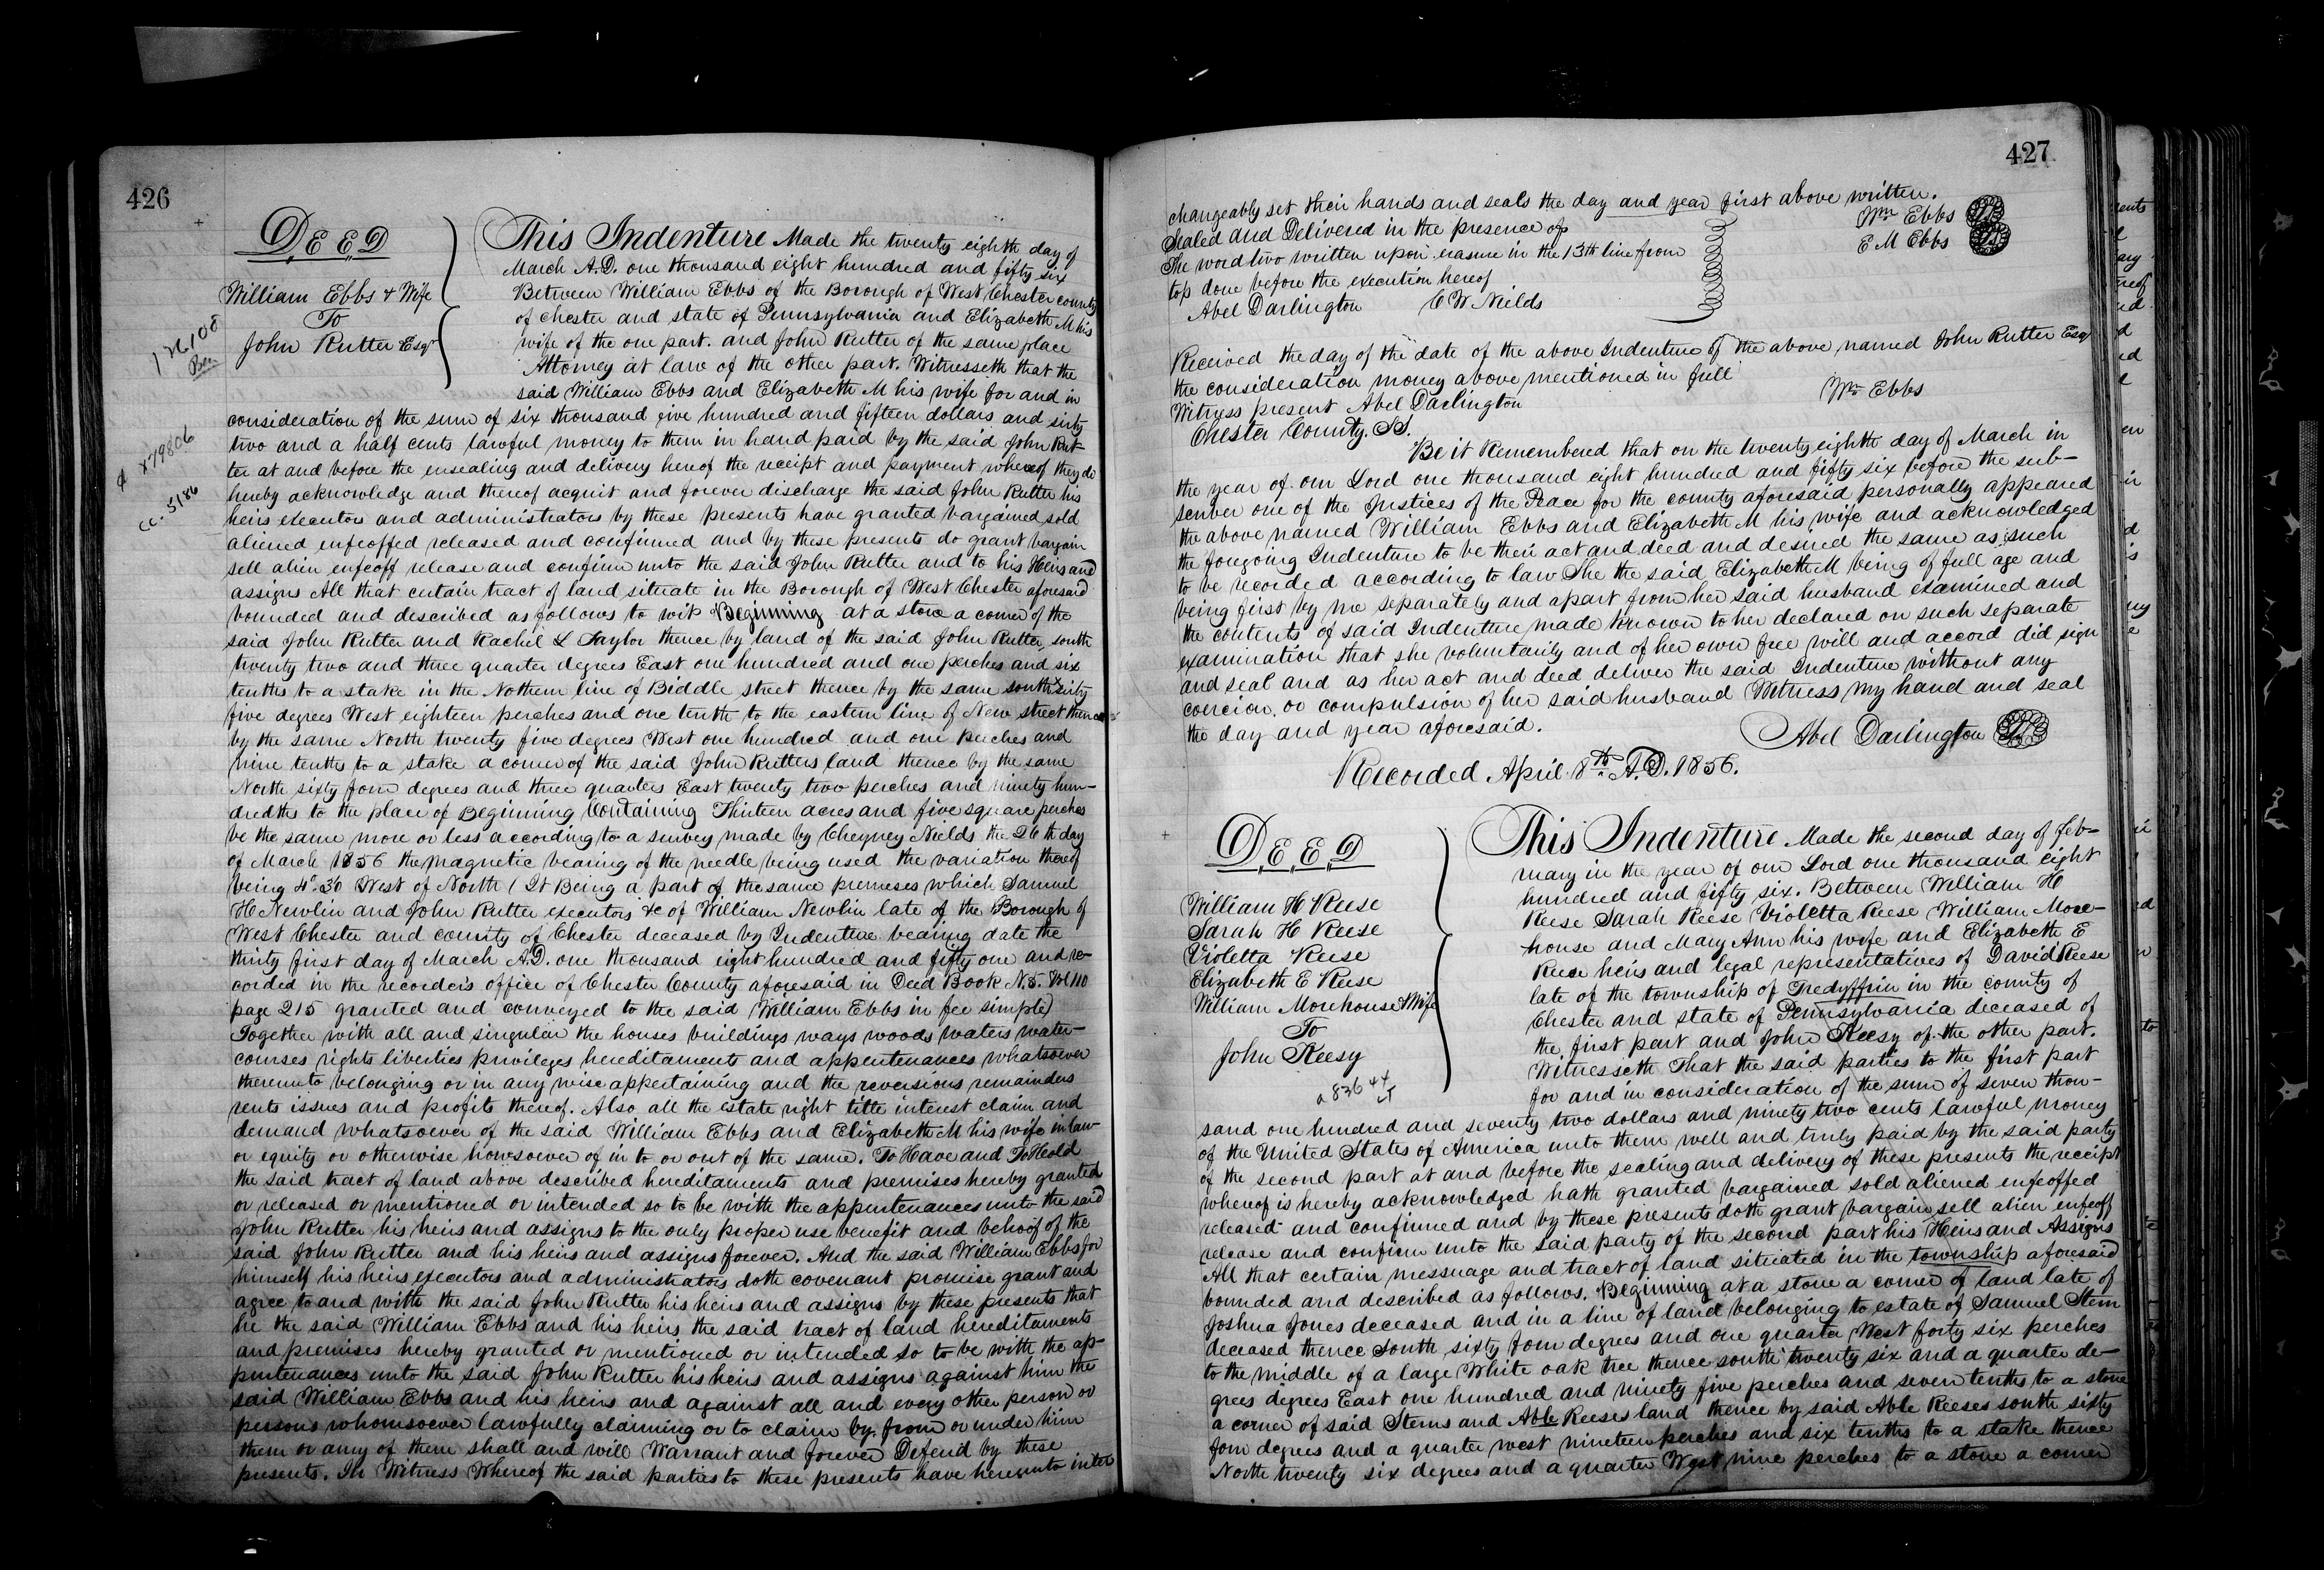 426
DEED
William Ebbs & Wife
To
John Rutter Esqr
This Indenture Made the twenty eighth day of
March A.D. one thousand eight hundred and fifty six
Between William Ebbs of the Borough of West Chester county
of Chester and state of Pennsylvania and Elizabeth M his
wife of the one part. and John Rutter of the same place
Attorney at law of the other part. Witnesseth that the
said William Ebbs and Elizabeth M his wife for and in
consideration of the sum of six thousand five hundred and fifteen dollars and sixty
two and a half cents lawful money to them in hand paid by the said John Rut-
ter at and before the ensealing and delivery hereof the receipt and payment whereof they do
hereby acknowledge and thereof acquit and forever discharge the said John Rutter his
heirs executors and administrators by these presents have granted bargained sold
aliened enfeoffed released and confirmed and by these presents do grant bargain
sell alien enfeoff release and confirm unto the said John Rutter and to his Heirs and
assigns All that certain tract of land situate in the Borough of West Chester aforesaid
bounded and described as follows to wit Beginning at a stone a corner of the
said John Rutter and Rachel L Taylor thence by land of the said John Rutter, south
twenty two and three quarter degrees East one hundred and one perches and six
tenths to a stake in the Nothern line of Biddle street thence by the same south sixty
five degrees West eighteen perches and one tenth to the eastern line of New street thence
by the same North twenty five degrees West one hundred and one perches and
nine tenths to a stake a corner of the said John Rutters land thence by the same
North sixty four degrees and three quarters East twenty two perches and ninety hun-
dredths to the place of Beginning Containing Thirteen acres and five square perches
be the same more or less according to a survey made by Cheyney Nields the 26th day
of March 1856 the magnetic bearing of the needle being used the variation thereof
being 4°.30 West of North (It Being a part of the same premises which Samuel
H Newlin and John Rutter executors &c of William Newlin late of the Borough of
West Chester and county of Chester deceased by Indenture bearing date the
thirty first day of March A.D. one thousand eight hundred and fifty one and re-
corded in the recorder's office of Chester County aforesaid in Deed Book N.5. Vol 110
page 215 granted and conveyed to the said William Ebbs in fee simple)
Together with all and singular the houses buildings ways woods waters water-
courses rights liberties privileges hereditaments and appurtenances whatsoever
thereunto belonging or in any wise appertaining and the reversions remainders
rents issues and profits thereof. Also all the estate right title interest claim and
demand whatsoever of the said William Ebbs and Elizabeth M his wife in law
or equity or otherwise howsoever of in to or out of the same. To Have and To Hold
the said tract of land above described hereditaments and premises hereby granted
or released or mentioned or intended so to be with the appurtenances unto the said
John Rutter his heirs and assigns to the only proper use benefit and behoof of the
said John Rutter and his heirs and assigns forever. And the said William Ebbs for
himself his heirs executors and administrators doth covenant promise grant and
agree to and with the said John Rutter his heirs and assigns by these presents that
he the said William Ebbs and his heirs the said tract of land hereditaments
and premises hereby granted or mentioned or intended so to be with the ap-
purtenances unto the said John Rutter his heirs and assigns against him the
said William Ebbs and his heirs and against all and every other person or
persons whomsoever lawfully claiming or to claim by, from or under him
them or any of them shall and will Warrant and forever Defend by these
presents. In Witness Whereof the said parties to these presents have hereunto inter
427
changeably set their hands and seals the day and year first above written.
Sealed and Delivered in the presence of
The word two written upon erasure in the 13th line from
top done before the execution hereof
Abel Darlington C W Nields
Wm Ebbs
E M Ebbs
Received the day of the date of the above Indenture of the above named John Rutter Esqr
the consideration money above mentioned in full
Witness present Abel Darlington
Wm Ebbs
Chester County. SS.
Be it Remembered that on the twenty eighth day of March in
the year of our Lord one thousand eight hundred and fifty six before the sub-
scriber one of the Justices of the Peace for the county aforesaid personally appeared
the above named William Ebbs and Elizabeth M his wife and acknowledged
the foregoing Indenture to be their act and deed and desired the same as such
to be recorded according to law She the said Elizabeth M being of full age and
being first by me separately and apart from her said husband examined and
the contents of said Indenture made known to her declared on such separate
examination that she voluntarily and of her own free will and accord did sign
and seal and as her act and deed deliver the said Indenture without any
coercion, or compulsion of her said husband Witness my hand and seal
the day and year aforesaid.
Abel Darlington
Recorded April 8th. A.D. 1856.
DEED
William H Reese
Sarah H Reese
Violetta Reese
Elizabeth E Reese
William Morehouse & Wife
To
John Reesy
This Indenture Made the second day of Feb-
ruary in the year of our Lord one thousand eight
hundred and fifty six. Between William H
Reese Sarah Reese Violetta Reese William More-
house and Mary Ann his wife and Elizabeth E
Reese heirs and legal representatives of David Reese
late of the township of Tredyffrin in the county of
Chester and state of Pennsylvania deceased of
the first part and John Reesy of the other part.
Witnesseth That the said parties to the first part
for and in consideration of the sum of seven thou-
sand one hundred and seventy two dollars and ninety two cents lawful money
of the United States of America unto them well and truly paid by the said party
of the second part at and before the sealing and delivery of these presents the receipt
whereof is hereby acknowledged hath granted bargained sold aliened enfeoffed
released and confirmed and by these presents doth grant bargain sell alien enfeoff
release and confirm unto the said party of the second part his Heirs and Assigns
All that certain messuage and tract of land situated in the township aforesaid
bounded and described as follows. Beginning at a stone a corner of land late of
Joshua Jones deceased and in a line of land belonging to estate of Samuel Stern
deceased thence South sixty four degrees and one quarter West forty six perches
to the middle of a large White oak tree thence south twenty six and a quarter de-
grees degrees East one hundred and ninety five perches and seven tenths to a stone
a corner of said Sterns and Able Reeses land thence by said Able Reeses south sixty
four degrees and a quarter west nineteen perches and six tenths to a stake thence
North twenty six degrees and a quarter West nine perches to a stone a corner